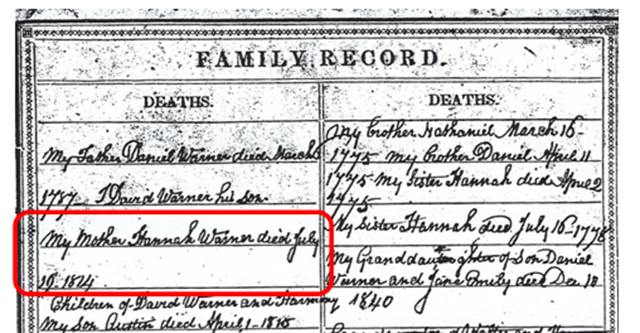 FAMILY RECORD.
DEATHS.
My Father Daniel Warner died March 6
1787 I David Warner his son.
My Mother Hannah Warner died July
19 1824
Children of David Warner and Harmony
My Son Austin died April 1 1815
DEATHS.
My brother Nathaniel March 16-
1775 my brother Daniel April 11
1775 my Sister Hannah died April 2
1775
My Sister Hannah died July 16-1778
My Granddaughter of Son Daniel
Warner and Jane Emily died Dec 10
1840